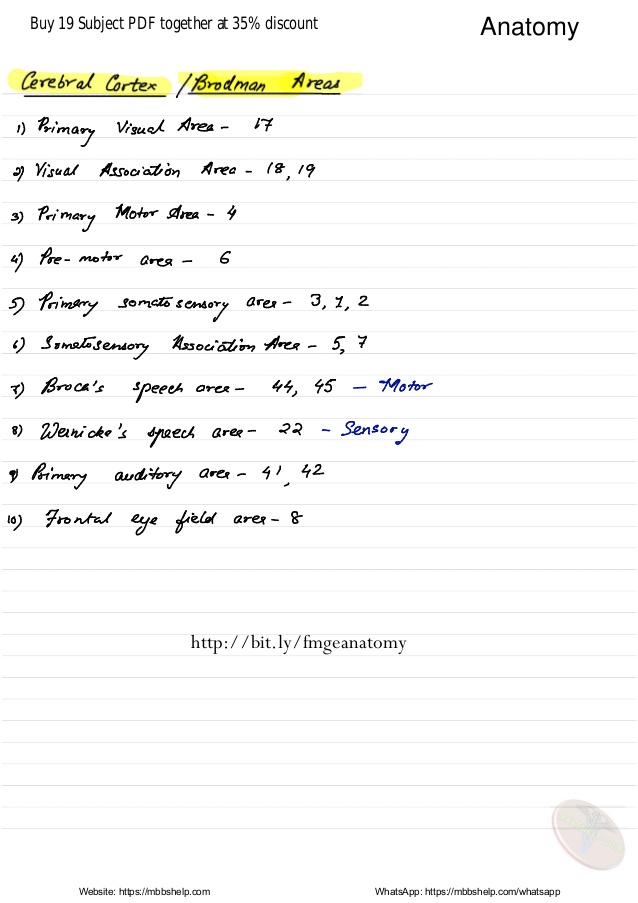 Buy 19 Subject PDF together at 35% discount
Anatomy
Cerebral Cortex / Brodman Areas
1) Primary Visual Area - 17
2) Visual Association Area - 18, 19
3) Primary Motor Area - 4
4) Pre-motor area - 6
5) Primary somatosensory area - 3, 1, 2
6) Somatosensory Association Area - 5, 7
7) Broca's speech area - 44, 45 - Motor
8) Wernicke's speech area - 22 - Sensory
9) Primary auditory area - 41, 42
10) Frontal eye field area - 8
http://bit.ly/fmgeanatomy
Website: https://mbbshelp.com
WhatsApp: https://mbbshelp.com/whatsapp